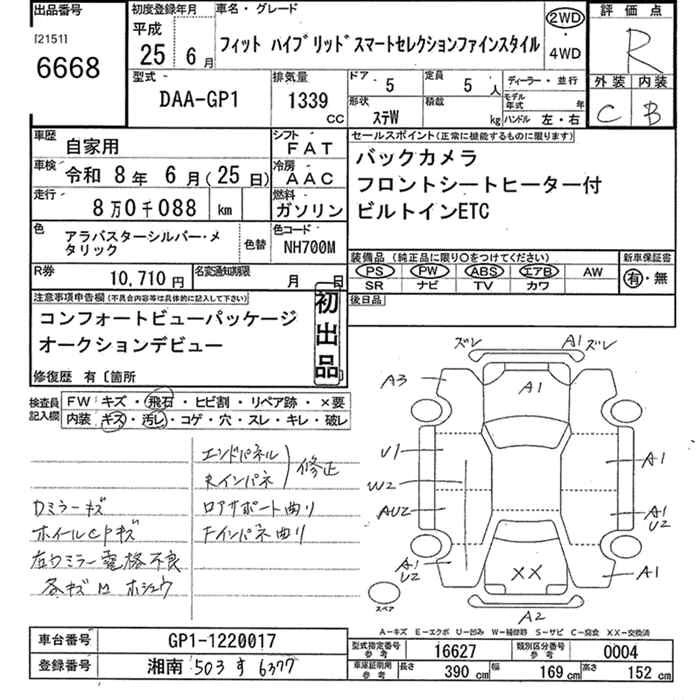 出品番号
[2151]
6668
初度登録年月
平成
25年6月
車名・グレード
フィット ハイブリッドスマートセレクションファインスタイル
2WD
・
4WD
評価点
R
外装 内装
C B
型式
DAA-GP1
排気量
1339
CC
ドア・ 5
形状
ステW
定員 5 人
積載 kg
ディーラー・並行
モデル年式 年
ハンドル 左・右
車歴
自家用
シフト
FAT
車検
令和 8年 6月(25日)
冷房
AAC
走行
8万0千088 km
燃料
ガソリン
色
アラバスターシルバー・メタリック
色替
色コード
NH700M
R券
10,710円
名変通知期限
月 日
セールスポイント(正常に機能するものに限ります)
バックカメラ
フロントシートヒーター付
ビルトインETC
装備品 (純正品に限り○をつけてください)
PS PW ABS エアB AW
SR ナビ TV カワ
新車保証書
有・無
後日品
注意事項申告欄(不具合内容等は具体的に記入して下さい)
コンフォートビューパッケージ
オークションデビュー
初出品
修復歴 有〔箇所
検査員記入欄
FW キズ・飛石・ヒビ割・リペア跡・×要
内装 キズ・汚レ・コゲ・穴・スレ・キレ・破レ
エンドパネル
Rインパネ
修正
Dミラーキズ
ロアサポート曲リ
ホイールCPキズ
Fインパネ曲リ
左Dミラー電格不良
各キズ凹ホシュウ
ズレ
A1ズレ
A3
A1
U1
A1
W2
AU2
A1
U2
A1
U2
A1
XX
A2
スペア
A-キズ E-エクボ U-凹み W-補修跡 S-サビ C-腐食 XX-交換済
車台番号
GP1-1220017
登録番号
湘南 503 す 6377
型式指定番号
参考
16627
類別区分番号
参考
0004
車庫証明用
参考
長さ 390 cm
幅 169 cm
高さ 152 cm